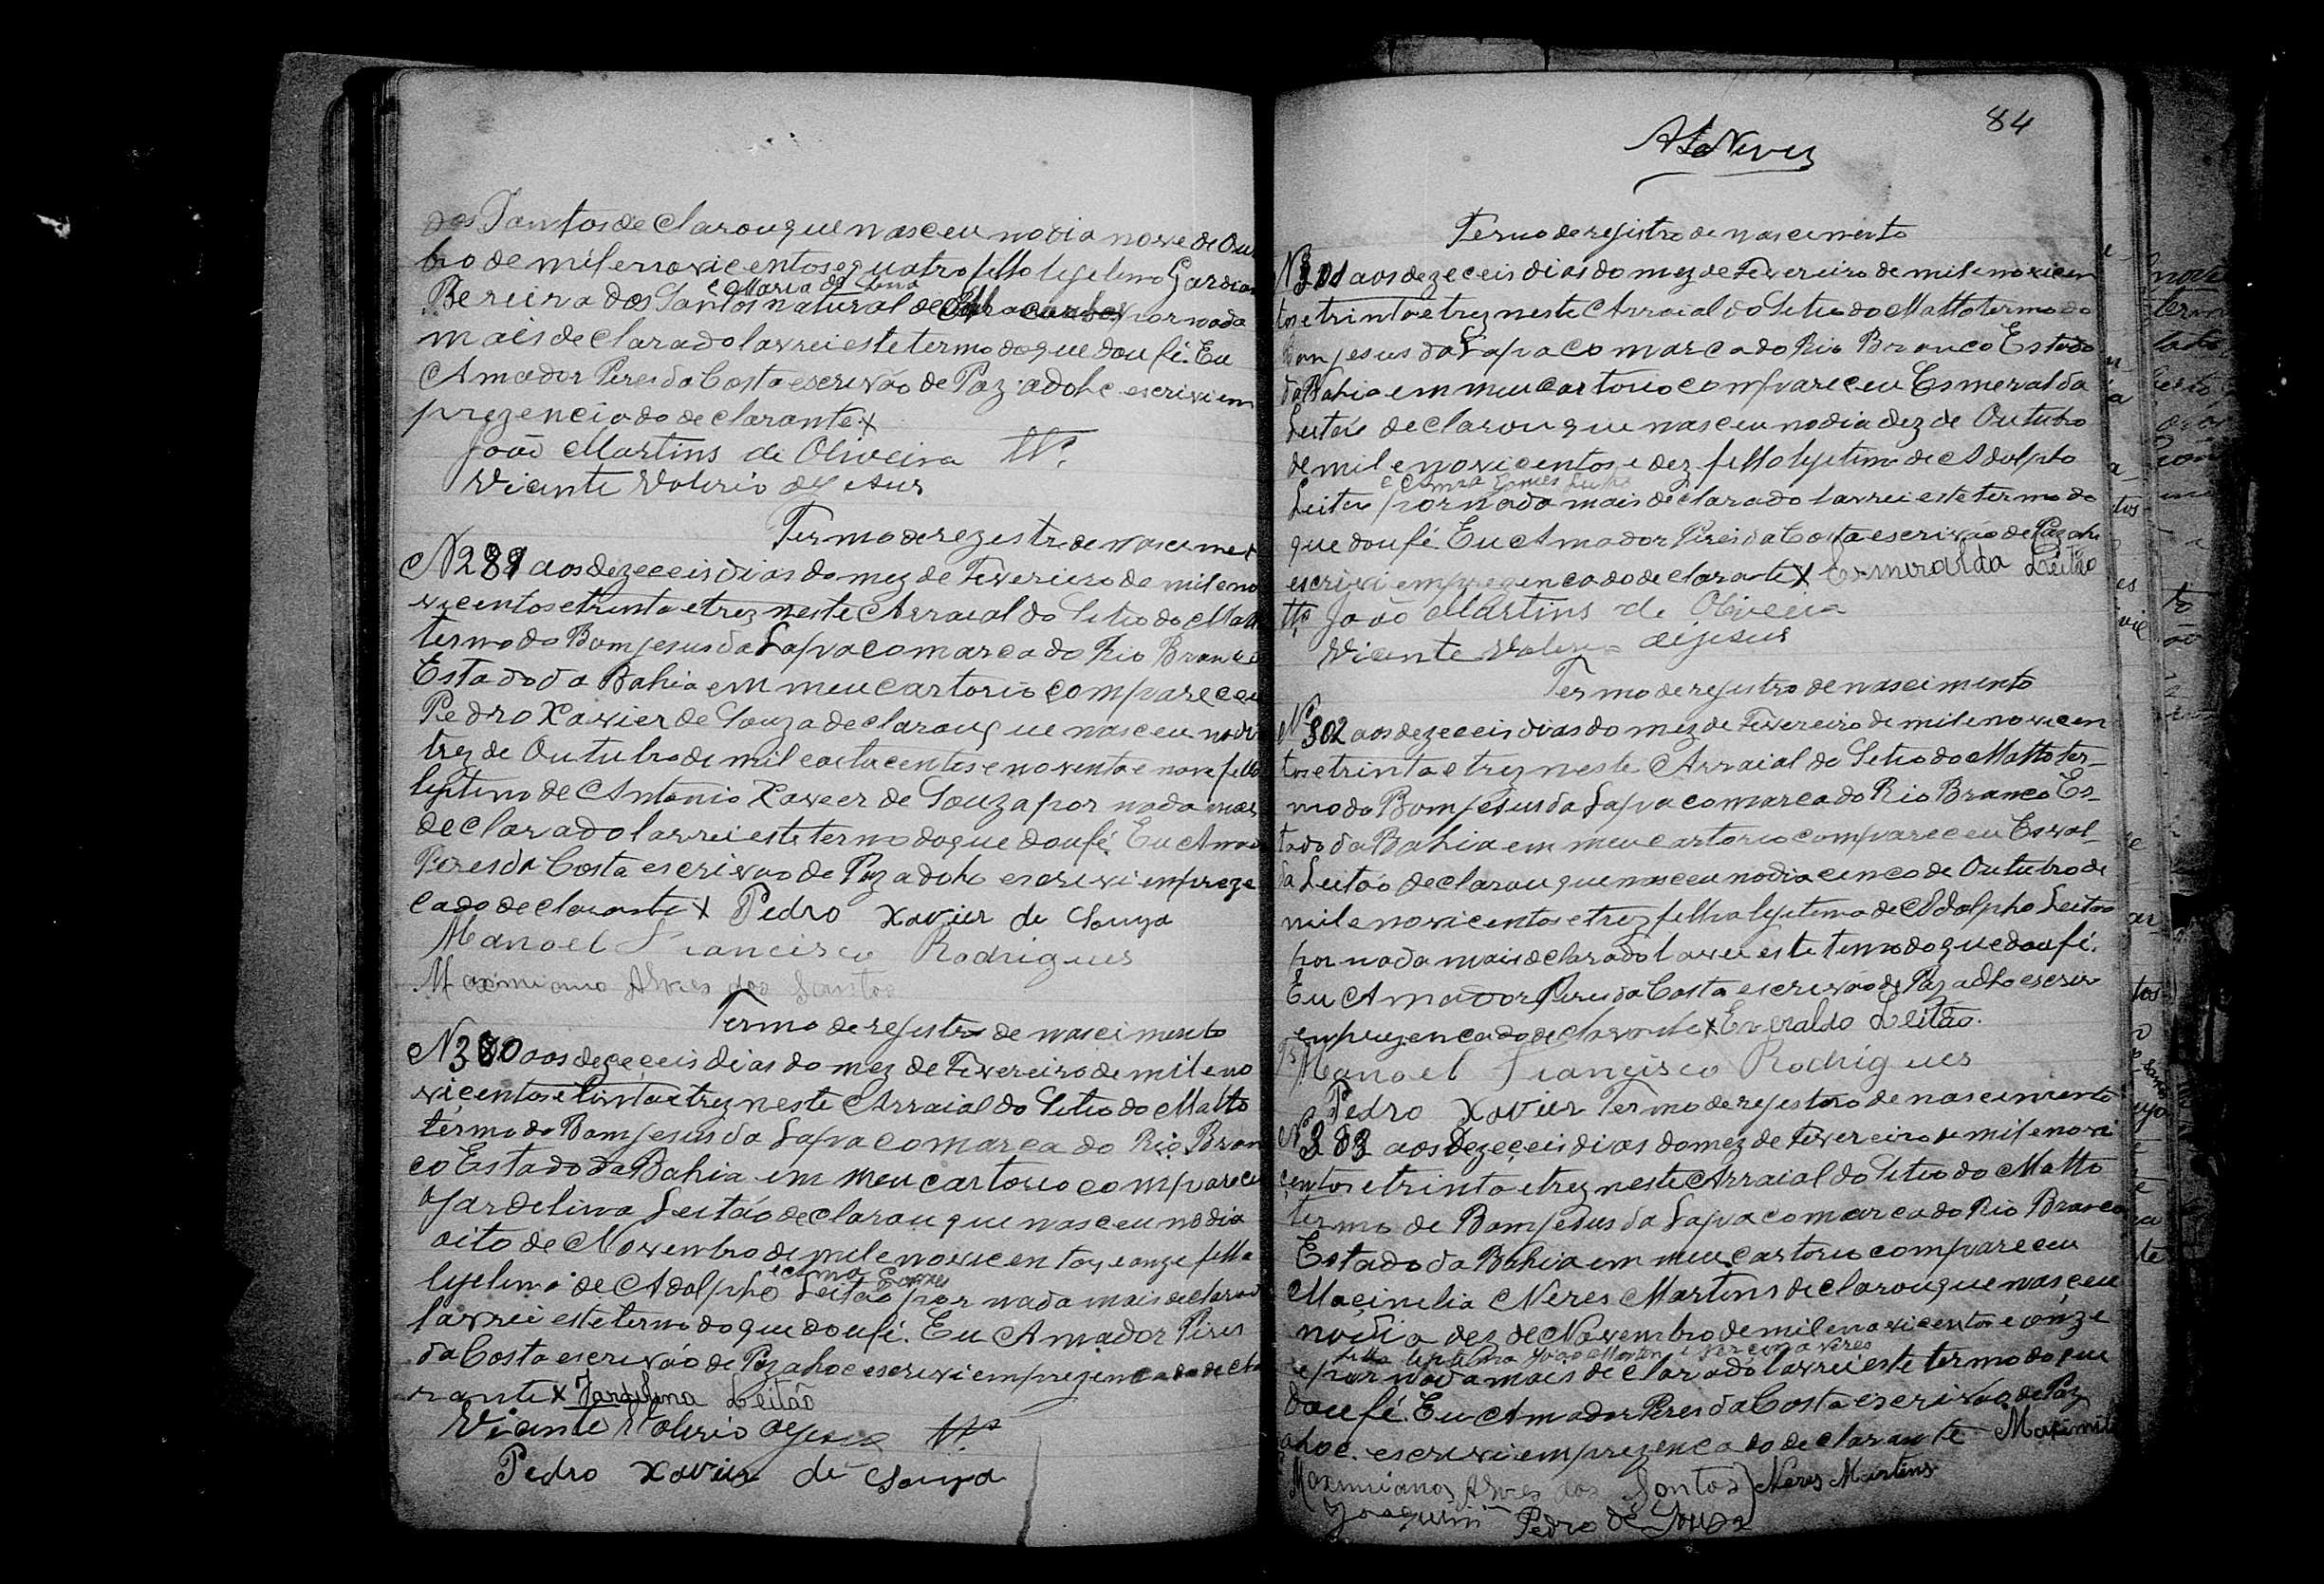 dos Santos declarou que nasceu no dia nove de Ou
bro de mil e novicentos e quatro filho lejetimo Gardian
e Maria de
Pereira dos Santos natural de por nada
mais declarado lavrei este termo do que dou fé. Eu
Amador Peres da Costa escrivão de Paz adohc escrivi em
prezencia do declarante x
João Martins de Oliveira Tta
Vicente Valerio de Jesus
Termo de rezestro de nascimen
N 281 aos dezeceis dias do mez de Fevereiro de mil e no
vicentos e trinta e trez neste Arraial do Setio do Matt
termo do Bom jesus da Lapa comarca do Rio Branco
Estado da Bahia em meu cartorio compareceu
Pedro Xavier de Souza declarou que nasceu no di
trez de Outubro de mil e oitucentos e noventa e nove filho
lejitimo de Antonio Xavier de Souza por nada mais
declarado lavrei este termo do que dou fé. Eu Amad
Peres da Costa escrivão de Paz adohc escrivi em preze
ca do declarante x Pedro Xavier de Souza
Manoel Francisco Rodrigues
Maximiano Alves dos Santos
Termo de rejistro de nascimento
N 300 aos dezeceis dias do mez de Fevereiro de mil e no
vicentos e trinta e trez neste Arraial do Setio do Matto
termo do Bom jesus da Lapa comarca do Rio Bran
co Estado da Bahia em meu cartorio compareceu
a Jardelina Leitão declarou que nasceu no dia
oito de Novembro de mil e novicentos e onze filha
e Gomes
lejetima de Adolpho Leitão por nada mais declarad
lavrei este termo do que dou fé. Eu Amador Pires
da Costa escrivão de Paz ahoc escrivi em prezenca do decla
rante x Jardelina Leitão
Vicente Valerio de Jesus Tta
Pedro Xavier de Souza
84
A S Neves
Termo de rejistro de nascimento
N 301 aos dezeceis dias do mez de Fevereiro de mil e novicen
tos e trinta e trez neste Arraial do Setio do Matto termo do
Bom jesus da Lapa comarca do Rio Branco Estado
da Bahia em meu cartorio compareceu Esmeralda
Leitão declarou que nasceu no dia dez de Outubro
de mil e novicentos e dez filho lejetimo de Adolpho
e Gomes
Leitão por nada mais declarado lavrei este termo do
que dou fé. Eu Amador Peres da Costa escrivão de Paz ahc
escrivi em prezenca do declarante x Esmeralda Leitão
Tta João Martins de Oliveira
Vicente Valerio de Jesus
Termo de rejistro de nascimento
Nº 302 aos dezeceis dias do mez de Fevereiro de mil e novicen
tos e trinta e trez neste Arraial do Setio do Matto ter-
mo do Bom Jesus da Lapa comarca do Rio Branco Es-
tado da Bahia em meu cartorio compareceu Esval-
da Leitão declarou que nasceu no dia cinco de Outubro de
mil e novicentos e trez filha lejetima de Adolpho Leitão
por nada mais declarado lavrei este termo do que dou fé.
Eu Amador Peres da Costa escrivão de Paz adho escrevi
em prezenca do declarante x Leitão.
Manoel Francisco Rodrigues
Pedro Xavier Termo de rejestro de nascimento
Nº 303 aos dezeceis dias do mez de Fevereiro de mil e novi
centos e trinta e trez neste Arraial do Setio do Matto
termo de Bom Jesus da Lapa comarca do Rio Branco
Estado da Bahia em meu cartorio compareceu
Macimilia Neres Martins declarou que nasceu
no dia dez de Novembro de mil e novicentos e onze
filha lejetima João Martin e Neres
e por nada mais declarado lavrei este termo do que
dou fé. Eu Amador Peres da Costa escrivão de Paz
ahoc. escrivi em prezenca do declarante Maximili
Maximiano Alves dos Santos) Neres Martins
Joaquim Pedro de Souza